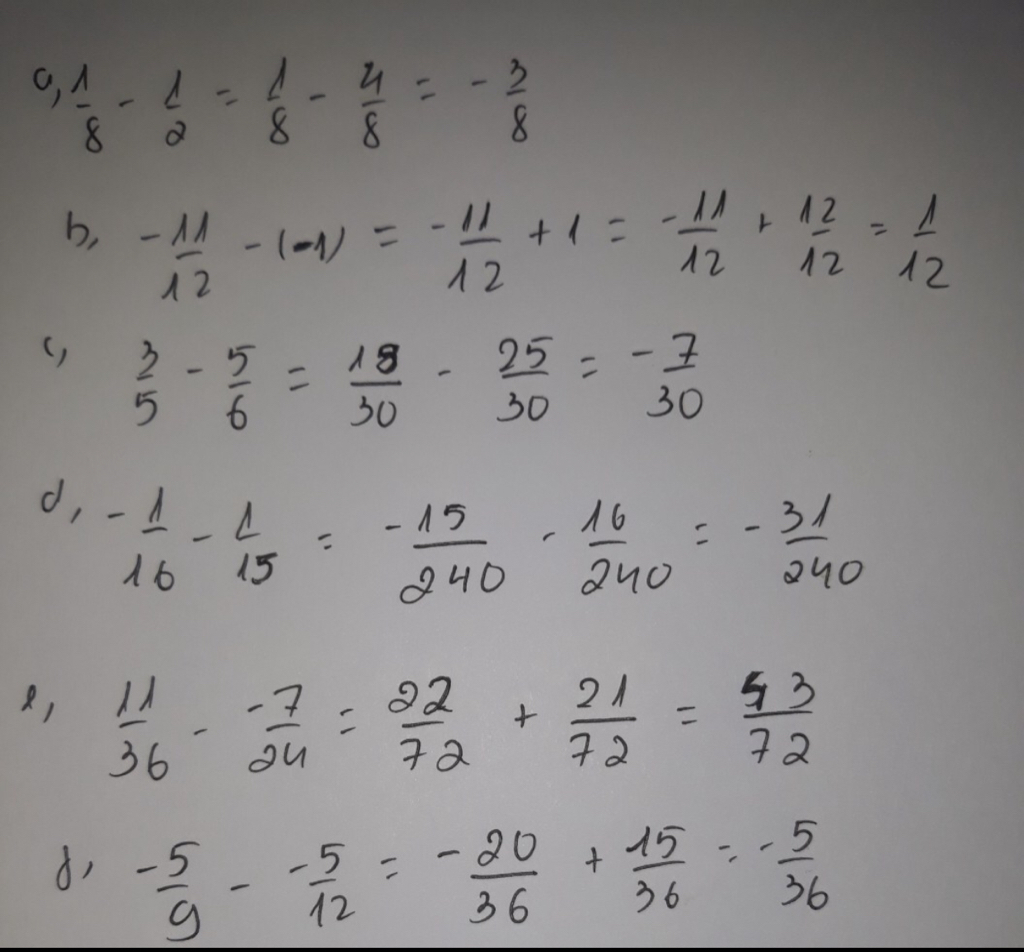 a, 1/8 - 1/2 = 1/8 - 4/8 = - 3/8
b, -11/12 - (-1) = -11/12 + 1 = -11/12 + 12/12 = 1/12
c, 3/5 - 5/6 = 18/30 - 25/30 = -7/30
d, -1/16 - 1/15 = -15/240 - 16/240 = -31/240
e, 11/36 - -7/24 = 22/72 + 21/72 = 43/72
f, -5/9 - -5/12 = -20/36 + 15/36 = -5/36